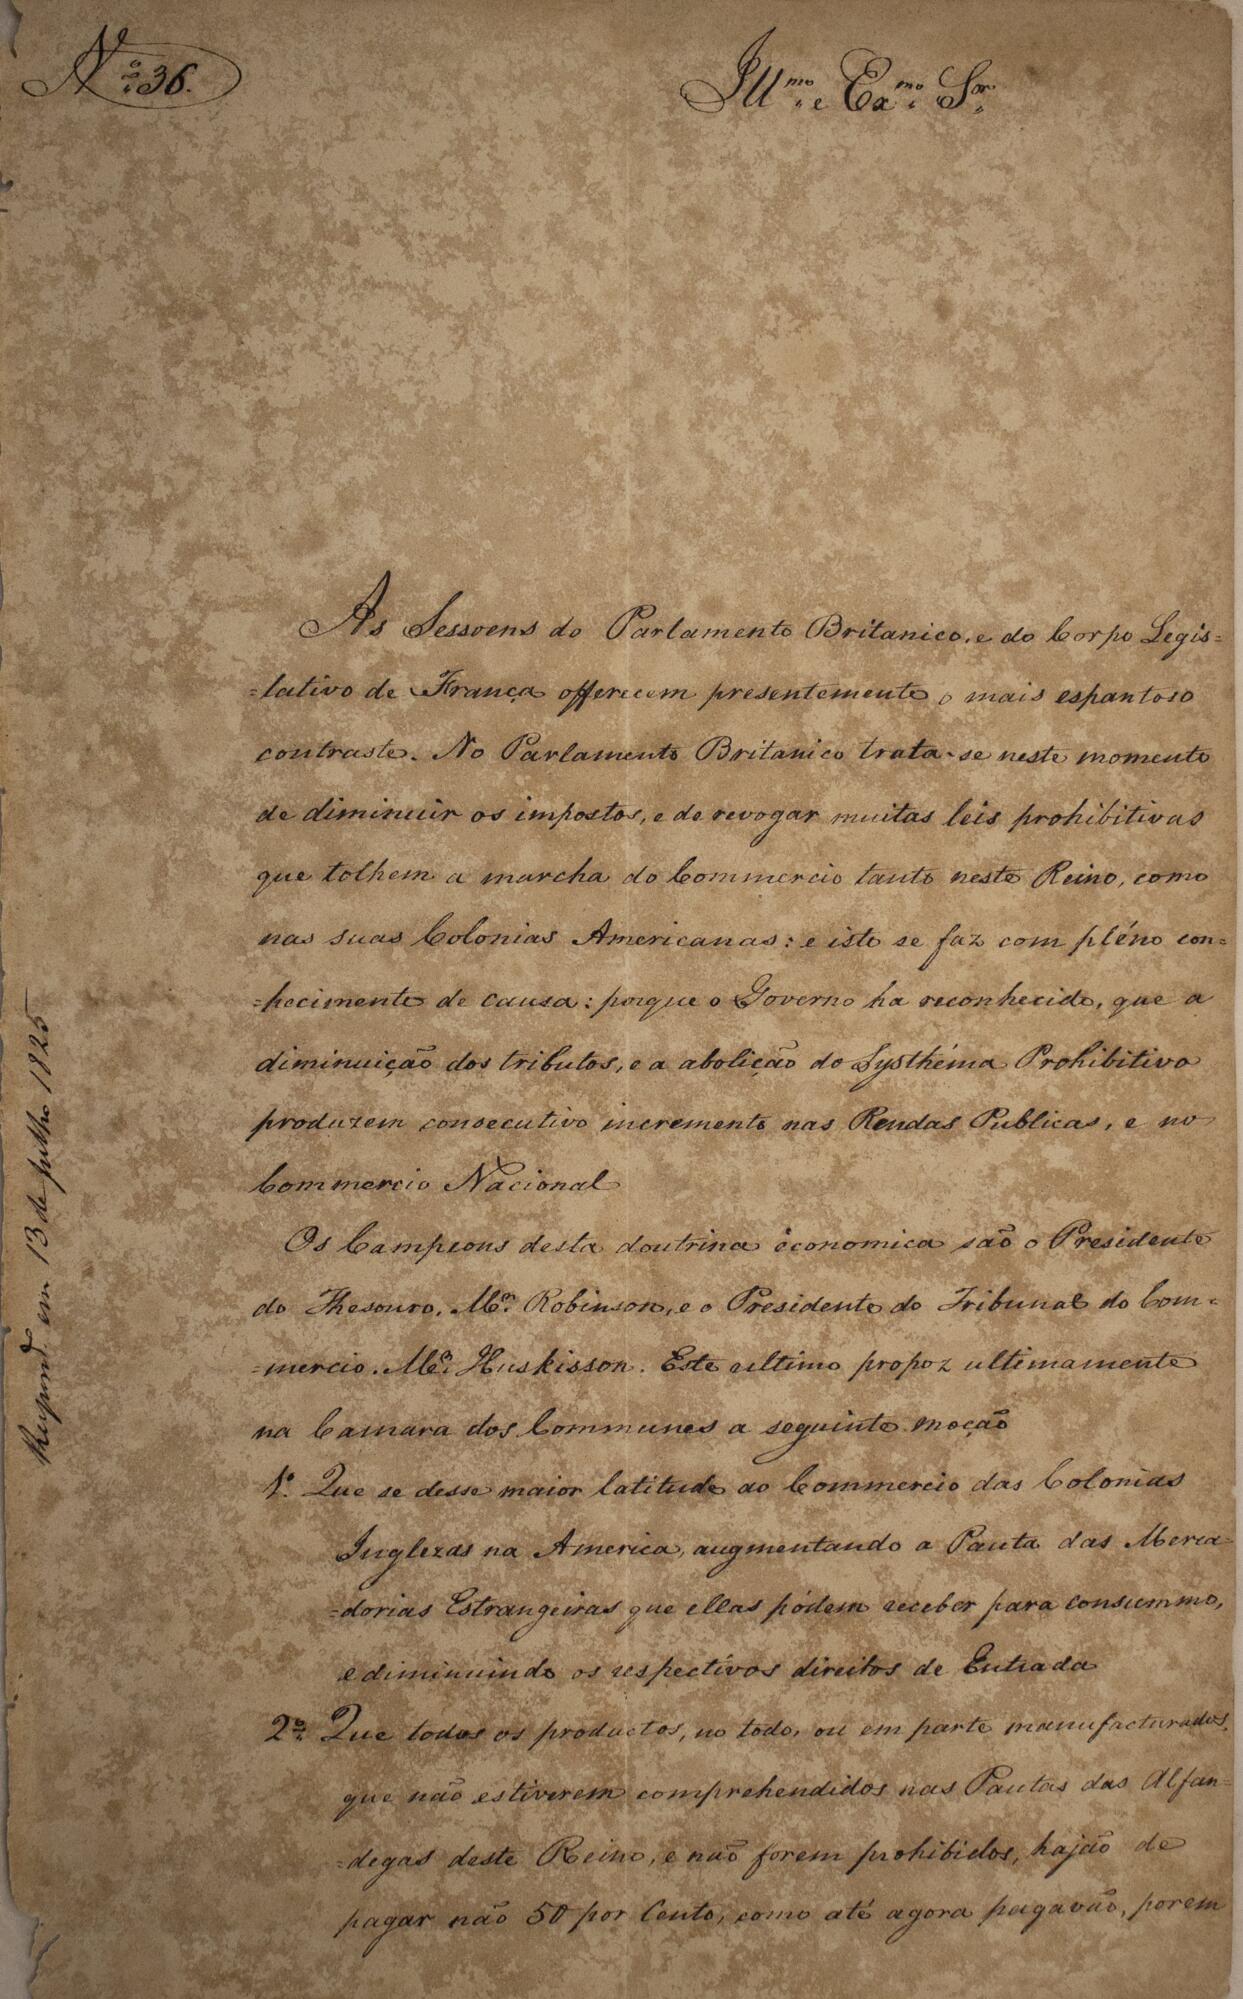 Nº 36.
Illmo. e Exmo. Sor.
As Sessoens do Parlamento Britanico, e do Corpo Legis=
=lativo de França offerecem presentemente o mais espantoso
contraste. No Parlamento Britanico trata-se neste momento
de diminuir os impostos, e de revogar muitas leis prohibitivas
que tolhem a marcha do Commercio tanto neste Reino, como
nas suas Colonias Americanas: e isto se faz com pléno con=
=hecimento de causa: porque o Governo ha reconhecido, que a
diminuição dos tributos, e a abolição do Systhéma Prohibitivo
produzem consecutivo incremento nas Rendas Publicas, e no
Commercio Nacional
Os Campeons desta doutrina économica são o Presidente
do Thesouro, Mr. Robinson, e o Presidente do Tribunal do Com=
=mercio, Mr. Huskisson. Este ultimo propoz ultimamente
na Camara dos Communes a seguinte moção
1º. Que se desse maior latitude ao Commercio das Colonias
Inglezas na America, augmentando a Pauta das Merca=
=dorias Estrangeiras que ellas pódem receber para consummo,
e diminuindo os respectivos direitos de Entrada
2º. Que todos os productos, no todo, ou em parte manufacturados,
que não estiverem comprehendidos nas Pautas das Alfan=
=degas deste Reino, e não forem prohibidos, hajão de
pagar não 50 por Cento, como até agora pagavão, porem
Respond. em 13 de Julho 1825